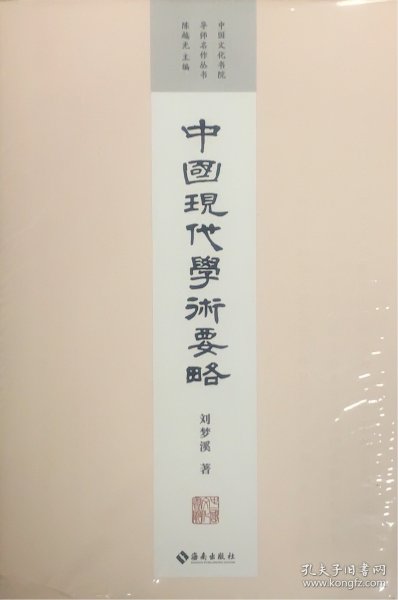 中国文化书院
导师名作丛书
陈越光 主编
中國現代學術要略
刘梦溪 著
海南出版社
HAINAN PUBLISHING HOUSE
孔夫子旧书网
kongfz.com